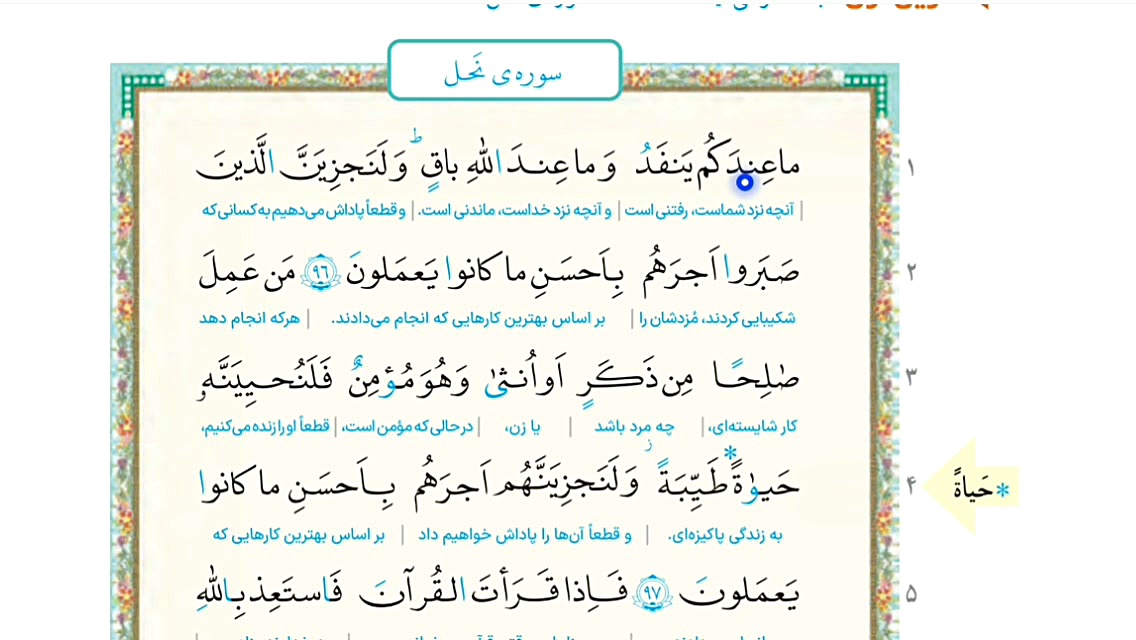 سوره‌ی نَحل
ما عِندَکُم یَنفَدُ وَ ما عِندَ اللهِ باقٍ ۗ وَ لَنَجزِیَنَّ الَّذینَ ۱
آنچه نزد شماست، رفتنی است | و آنچه نزد خداست، ماندنی است. | و قطعاً پاداش می‌دهیم به کسانی که
صَبَروا اَجرَهُم بِاَحسَنِ ما کانوا یَعمَلونَ ﴿۹۶﴾ مَن عَمِلَ ۲
شکیبایی کردند، مُزدشان را | بر اساس بهترین کارهایی که انجام می‌دادند. | هرکه انجام دهد
صٰلِحًا مِن ذَکَرٍ اَو اُنثیٰ وَ هُوَ مُؤمِنٌ فَلَنُحیِیَنَّهٗ ۳
کار شایسته‌ای، | چه مرد باشد | یا زن، | در حالی که مؤمن است، | قطعاً او را زنده می‌کنیم،
حَیوٰةً* طَیِّبَةً ز وَ لَنَجزِیَنَّهُم اَجرَهُم بِاَحسَنِ ما کانوا ۴ *حَیاةً
به زندگی پاکیزه‌ای. | و قطعاً آن‌ها را پاداش خواهیم داد | بر اساس بهترین کارهایی که
یَعمَلونَ ﴿۹۷﴾ فَاِذا قَرَأتَ القُرآنَ فَاستَعِذ بِاللهِ ۵